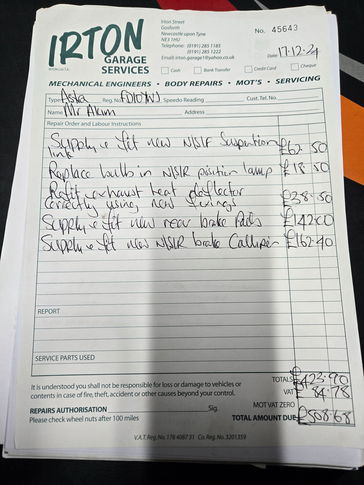 IRTON
GARAGE
SERVICES
Irton Street
Gosforth
Newcastle upon Tyne
NE3 1HU
Telephone: (0191) 285 1183
(0191) 285 1222
Email: irton.garage1@yahoo.co.uk
No. 45643
Date 17-12-24
Cash Bank Transfer Credit Card Cheque
MECHANICAL ENGINEERS • BODY REPAIRS • MOT'S • SERVICING
Type Astra Reg. No. Speedo Reading Cust. Tel. No.
Name Mr Address
Repair Order and Labour Instructions
Supply & fit new N/S/F Suspention
link £62.50
Replace bulb in N/S/R position lamp £18.50
Refit exhaust heat deflector
correctly using new fixings £38.50
Supply & fit new rear brake Pads £142.00
Supply & fit new N/S/R brake Calliper £162.40
REPORT
SERVICE PARTS USED
It is understood you shall not be responsible for loss or damage to vehicles or
contents in case of fire, theft, accident or other causes beyond your control.
REPAIRS AUTHORISATION Sig.
Please check wheel nuts after 100 miles
TOTALS £423.90
VAT £84.78
MOT VAT ZERO
TOTAL AMOUNT DUE £508.68
V.A.T. Reg. No. 178 4087 31 Co. Reg. No. 3201359